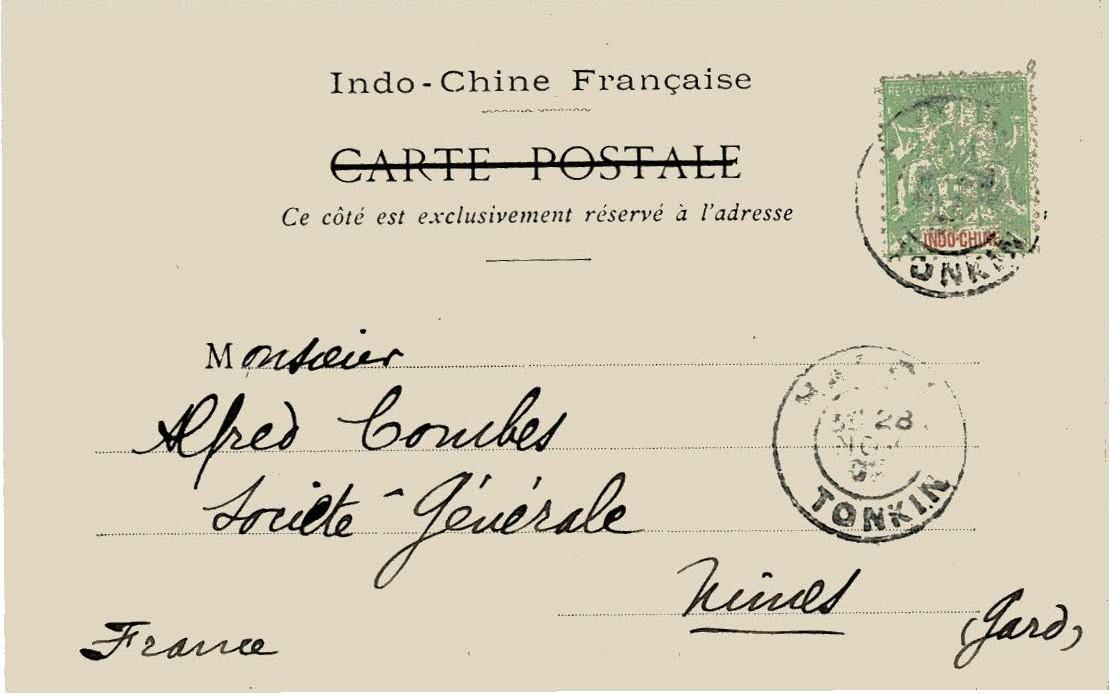 Indo-Chine Française
CARTE POSTALE
Ce côté est exclusivement réservé à l'adresse
REPUBLIQUE FRANÇAISE
INDO-CHINE
TONKIN
Monsieur
Alfred Combes
Société-Générale
Nimes
(Gard)
France
28
NOV
TONKIN